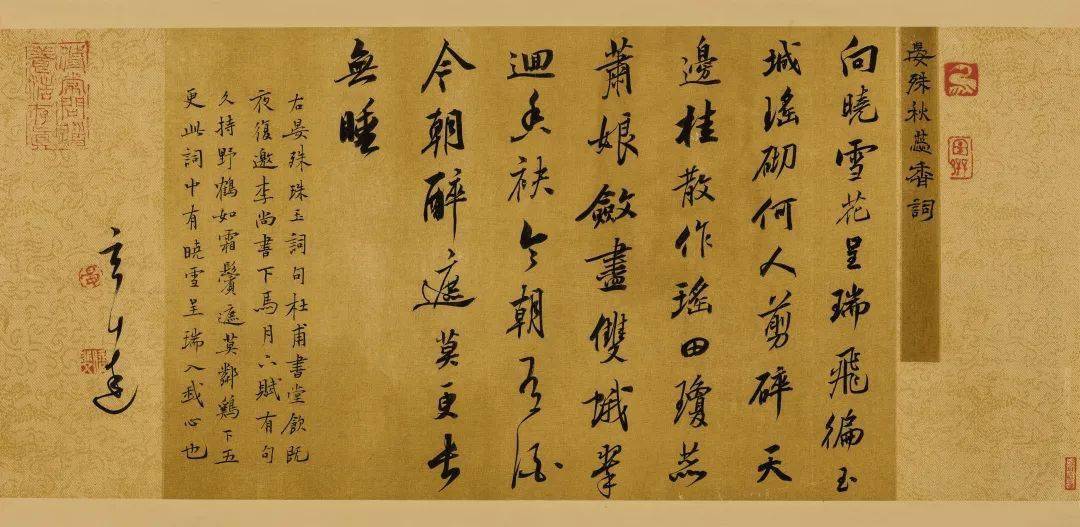 晏殊秋蕊香詞
向曉雪花呈瑞飛徧玉
城瑤砌何人剪碎天
邊桂散作瑤田瓊蕊
蕭娘斂盡雙蛾翠
迴香袂今朝有酒
今朝醉遮莫更長
無睡
右晏殊珠玉詞句杜甫書堂飲既
夜復邀李尚書下馬月下賦有句
久持野鶴如霜鬢遮莫鄰鷄下五
更此詞中有曉雪呈瑞入我心也